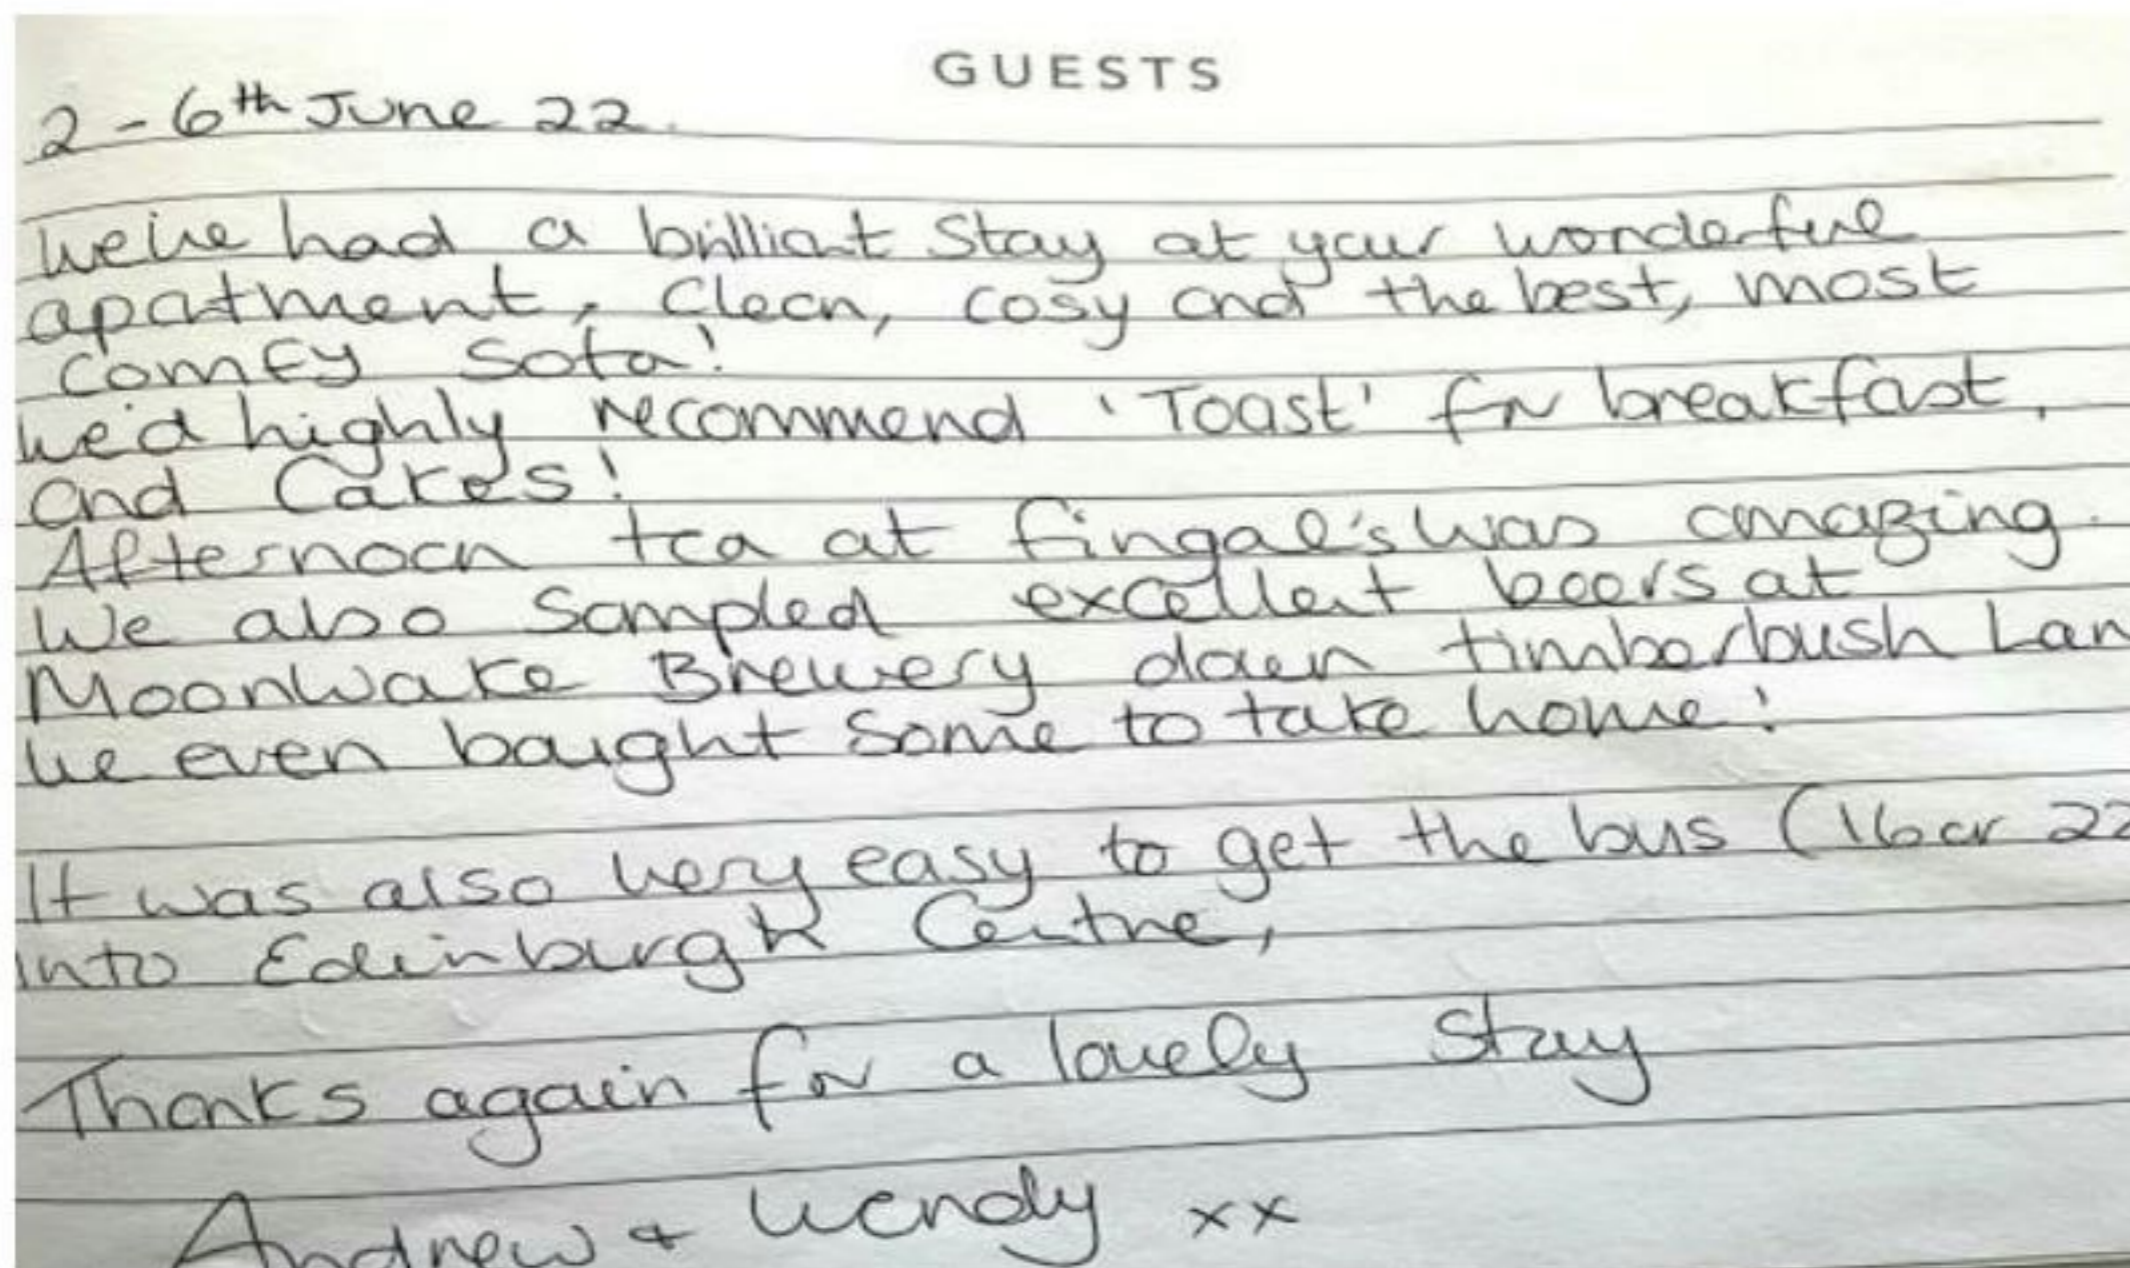 GUESTS
2 - 6th June 22.
We've had a brilliant stay at your wonderful
apatment, Clean, cosy and the best, most
comfy sofa!
We'd highly recommend 'Toast' for breakfast,
and Cakes!
Afternoon tea at fingal's was amazing.
We also sampled excellent beers at
Moonwake Brewery down timberbush Lan
We even bought some to take home!
It was also very easy to get the bus (16 or 22
into Edinburgh Centre,
Thanks again for a lovely stay
Andrew + Wendy xx